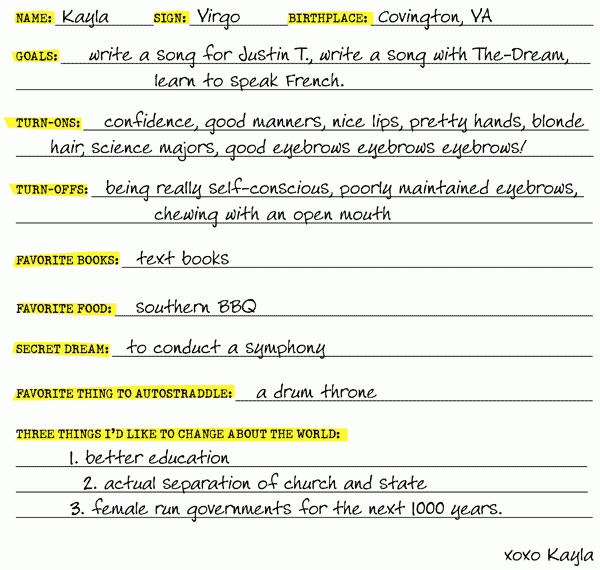 NAME: Kayla SIGN: Virgo BIRTHPLACE: Covington, VA
GOALS: write a song for Justin T., write a song with The-Dream,
learn to speak French.
TURN-ONS: confidence, good manners, nice lips, pretty hands, blonde
hair, science majors, good eyebrows eyebrows eyebrows!
TURN-OFFS: being really self-conscious, poorly maintained eyebrows,
chewing with an open mouth
FAVORITE BOOKS: text books
FAVORITE FOOD: southern BBQ
SECRET DREAM: to conduct a symphony
FAVORITE THING TO AUTOSTRADDLE: a drum throne
THREE THINGS I'D LIKE TO CHANGE ABOUT THE WORLD:
1. better education
2. actual separation of church and state
3. female run governments for the next 1000 years.
xoxo Kayla